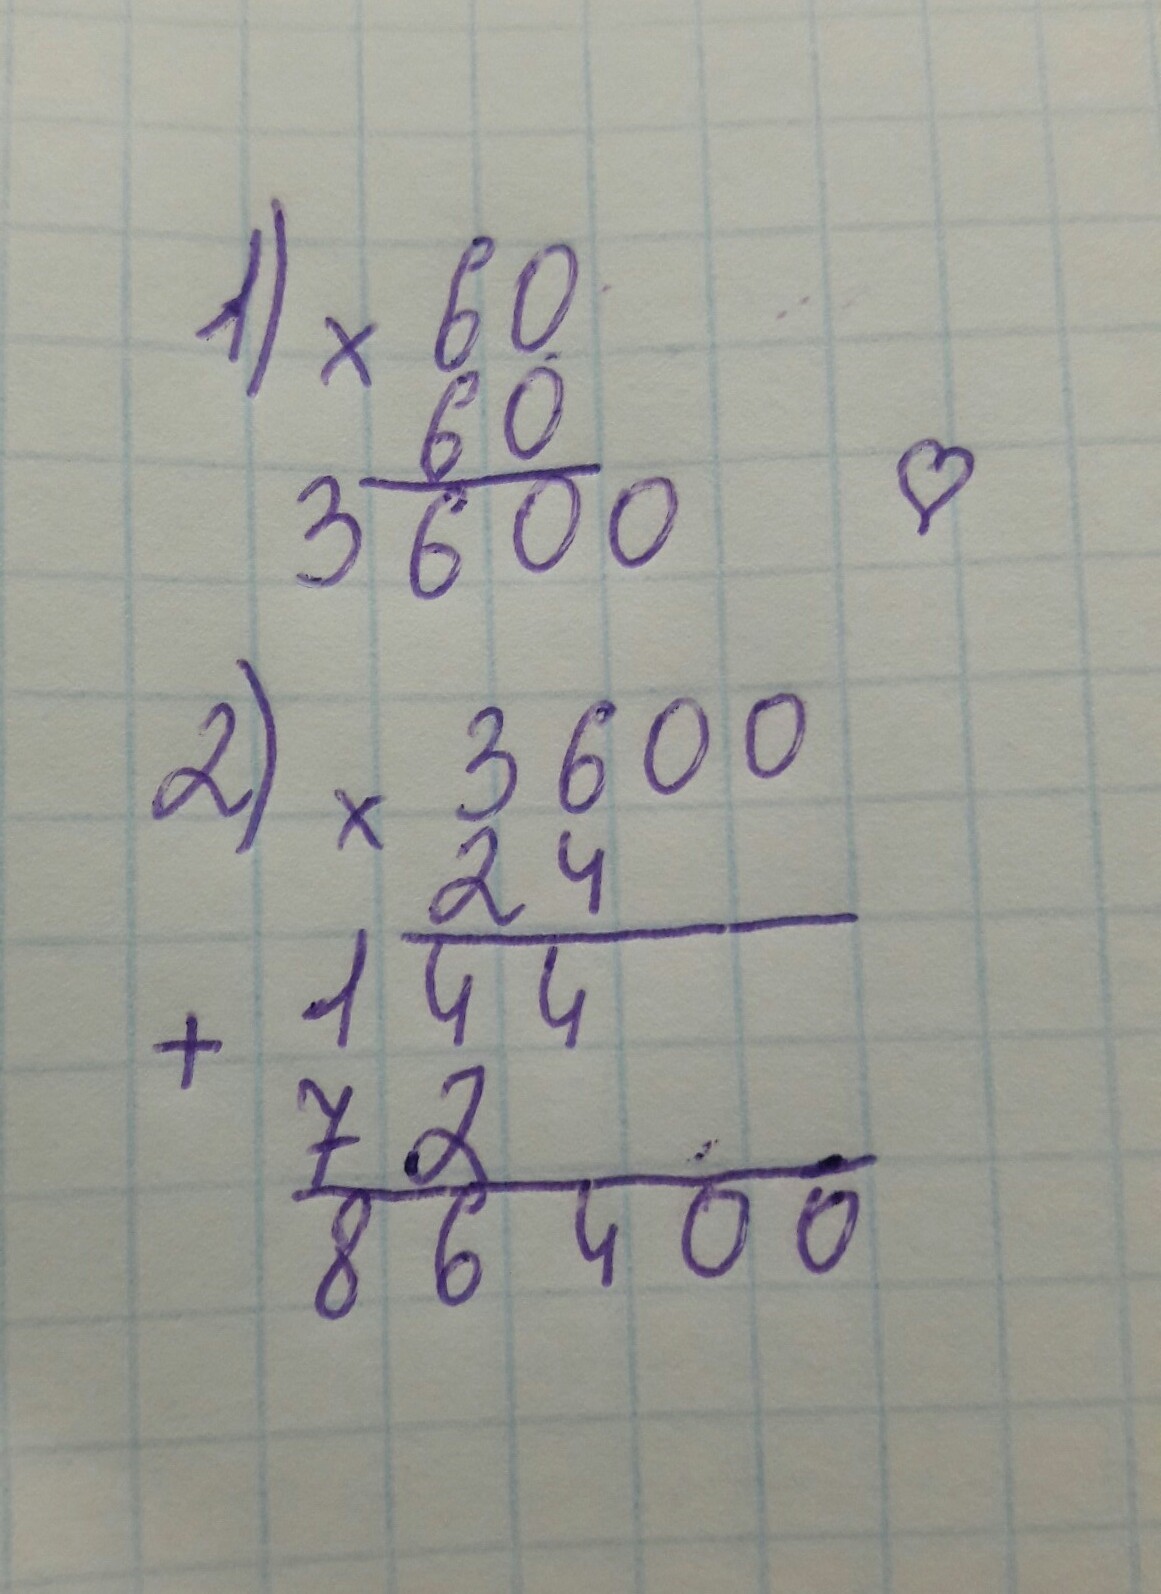 1) × 60
60
3600 ♡
2) × 3600
24
144
+
72
86400